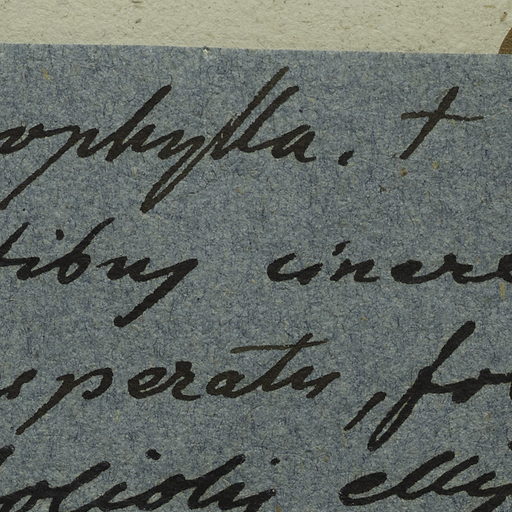 ophylla. †
tibus cinere
speratis, fo
foliolis elli